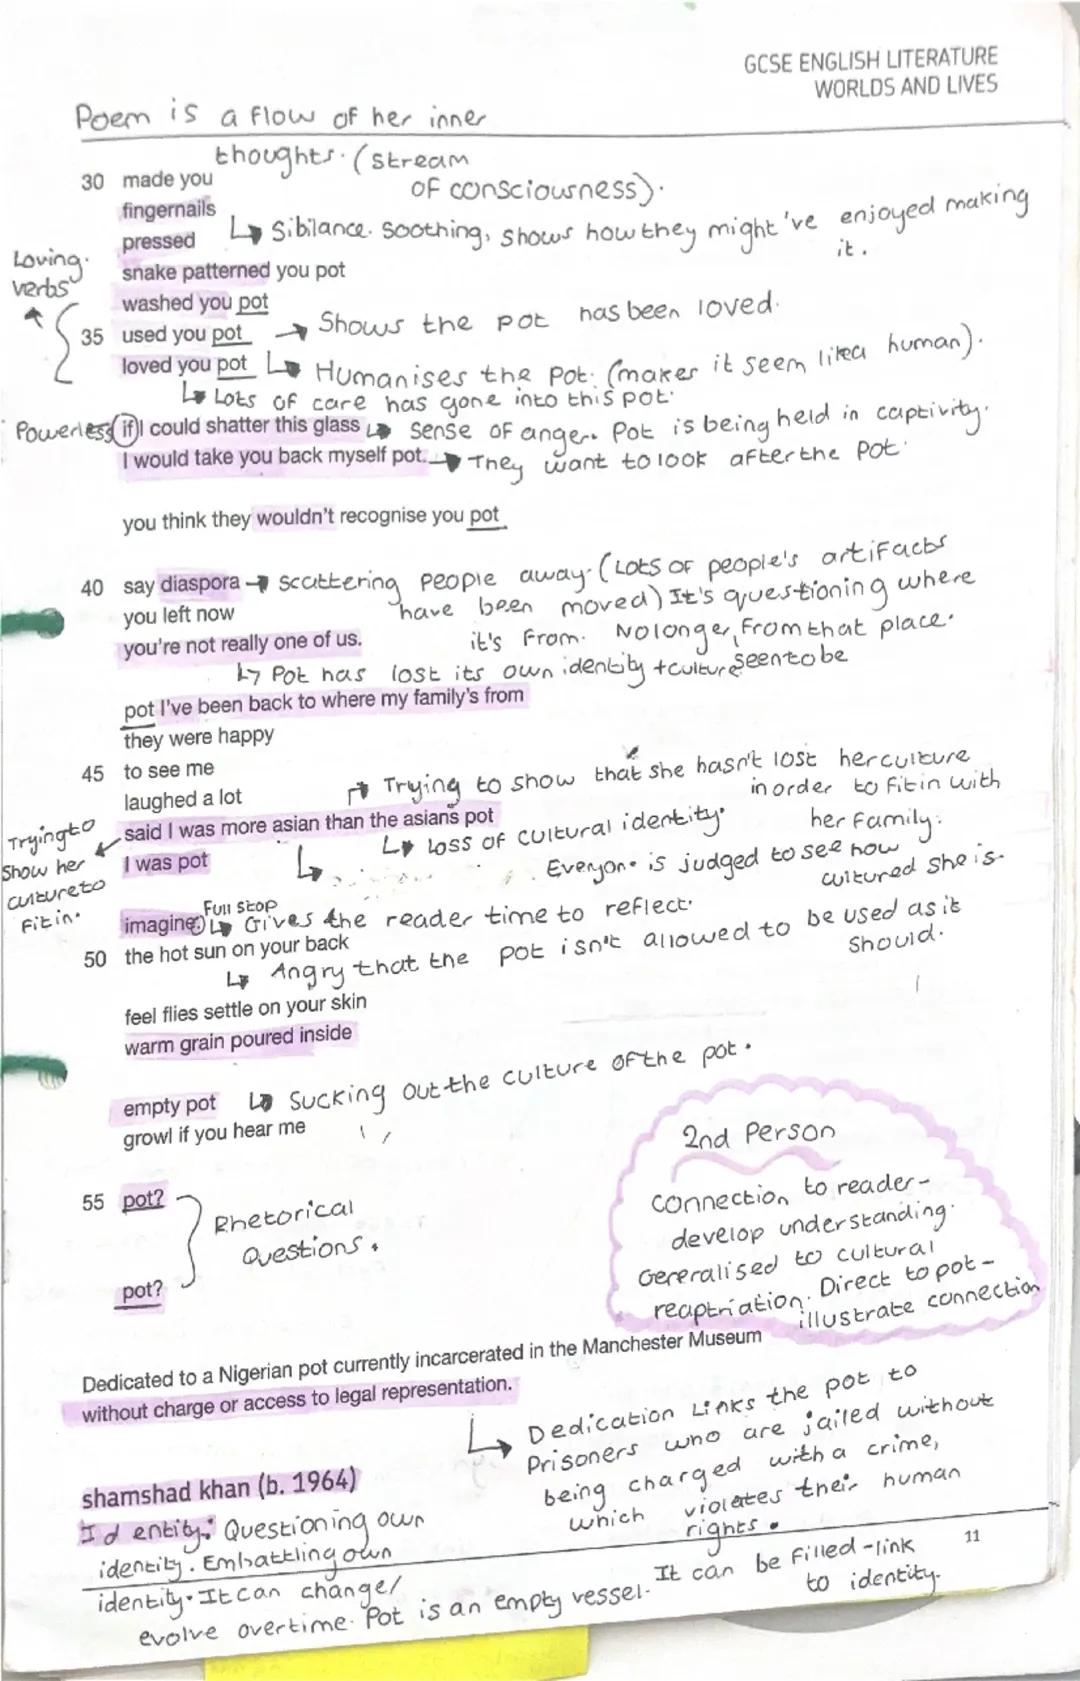 GCSE ENGLISH LITERATURE
WORLDS AND LIVES
Poem is a flow of her inner
thoughts. (stream
of consciousness).
30 made you
fingernails
↳ Sibilance. Soothing, shows how they might've enjoyed making
it.
pressed
Loving
verbs
snake patterned you pot
washed you pot
35 used you pot → Shows the pot has been loved.
loved you pot ↳ Humanises the pot. (makes it seem like a human).
↳ Lots of care has gone into this pot.
Powerless if I could shatter this glass ↳ sense of anger. Pot is being held in captivity.
I would take you back myself pot. → They want to look after the pot.
you think they wouldn't recognise you pot
40 say diaspora → scattering people away. (Lots of people's artifacts
you left now have been moved) It's questioning where
you're not really one of us. it's from. No longer from that place.
↳ Pot has lost its own identity + culture seen to be
pot I've been back to where my family's from
they were happy
45 to see me
laughed a lot ↱ Trying to show that she hasn't lost her culture
in order to fit in with
her family.
said I was more asian than the asians pot
↳ loss of cultural identity.
Trying to
Show her
culture to
fit in.
I was pot ↳ Everyone is judged to see how
cultured she is.
imagine. Full stop
↳ Gives the reader time to reflect.
50 the hot sun on your back
↳ Angry that the pot isn't allowed to be used as it
should.
feel flies settle on your skin
warm grain poured inside
empty pot ↳ Sucking out the culture of the pot.
growl if you hear me
55 pot?
Rhetorical
Questions.
pot?
2nd Person
Connection to reader-
develop understanding.
Gereralised to cultural
reaptriation. Direct to pot-
illustrate connection
Dedicated to a Nigerian pot currently incarcerated in the Manchester Museum
without charge or access to legal representation.
↳ Dedication Links the pot to
Prisoners who are jailed without
being charged with a crime,
which violates their human
rights.
shamshad khan (b. 1964)
Identity: Questioning own
identity. Embattling own
identity. It can change/
evolve overtime. Pot is an empty vessel.
It can be filled - link
to identity.
11